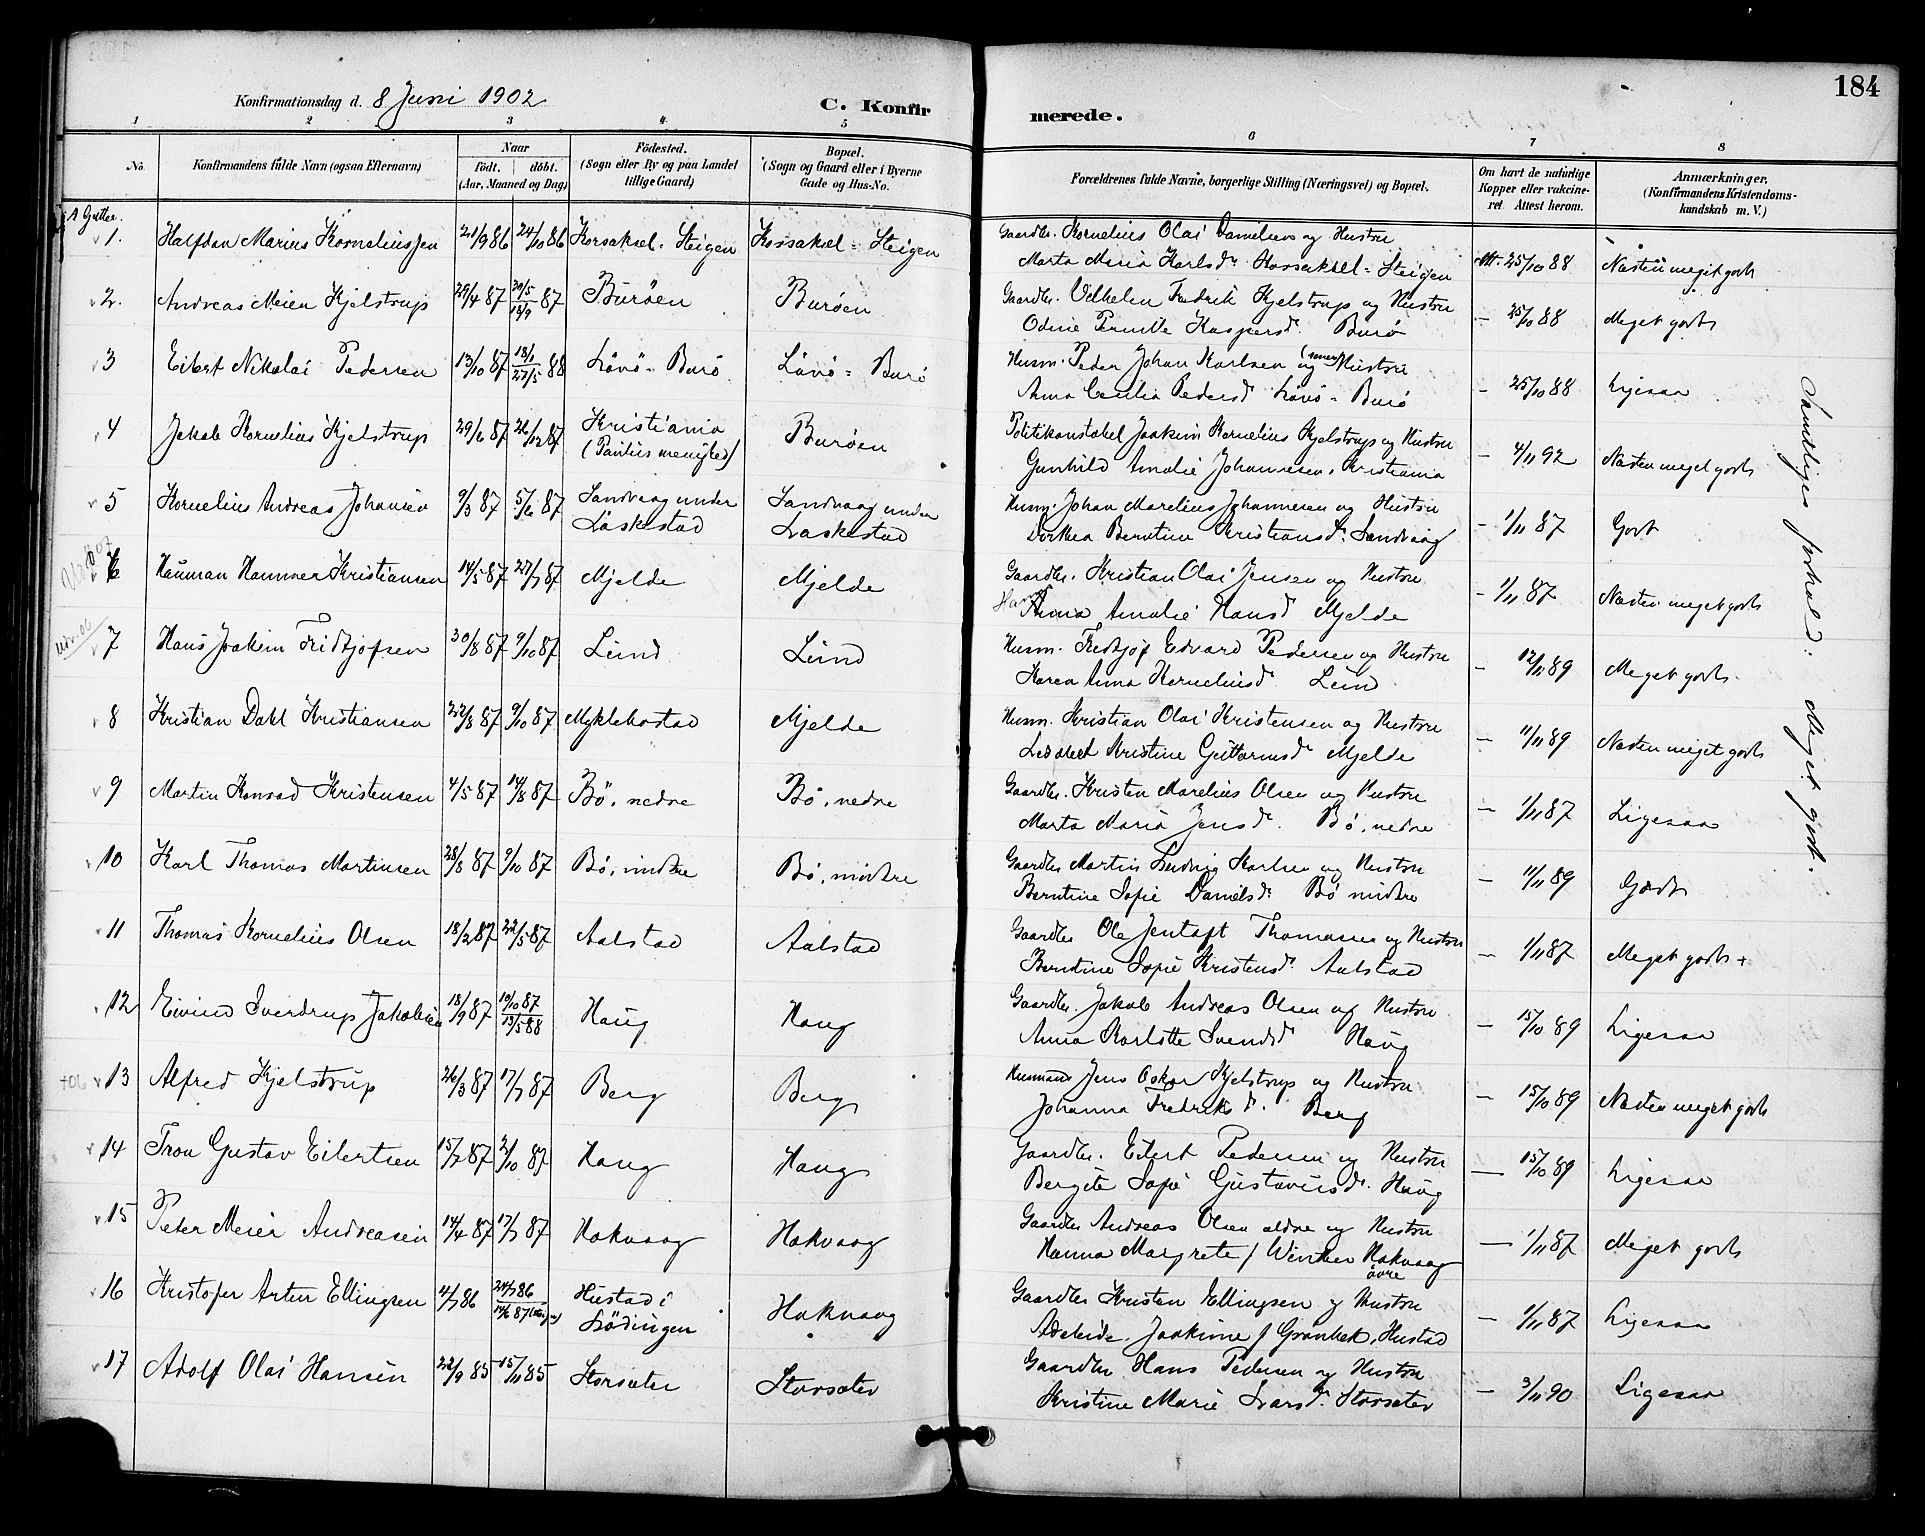 184
Konfirmationsdag d. 8 Juni 1902
C. Konfir merede.
1 2 3 4 5 6 7 8
No.
Konfirmandens fulde Navn (ogsaa Efternavn)
Naar
födt. döbt.
(Aar, Maaned og Dag)
Födested.
(Sogn eller By og paa Landet
tillige Gaard)
Bopæl.
(Sogn og Gaard eller i Byerne
Gade og Hus-No.
Forældrenes fulde Navne, borgerlige Stilling (Næringsvei) og Bopæl.
Om havt de naturlige
Kopper eller vaccine-
ret. Attest herom.
Anmærkninger,
(Konfirmandens Kristendoms-
kundskab m. V.)
A Gutter.
1. Halfdan Marius Korneliussen 21/9 86 24/10 86 Korsakel - Steigen Korsakel - Steigen Gaardbr. Kornelius Olai Danielsen og Hustru
Marta Maria Karlsd. Korsakel - Steigen Att. 25/10 88 Næsten meget godt
2. Andreas Meier Kjelstrup 29/4 87 20/5 87 Buröen Buröen Gaardbr. Vilhelm Fredrik Kjelstrup og Hustru
18/9
Odine Pernille Kaspersd. Burö — 25/10 88 Meget godt
3 Eilert Nikolai Pedersen 13/10 87 18/1 88 Lövö - Burö Lövö - Burö Husm. Peder Johan Karlsen og Hustru
27/5
Anna Cecilia Pedersd. Lövö - Burö — 25/10 88 Ligesaa
4 Jakob Kornelius Kjelstrup 29/6 87 26/12 87 Kristiania Buröen Politikonstabel Joakim Kornelius Kjelstrup og Hustru
(Paulus menighed) Gunhild Amalie Johannesen, Kristiania — 4/11 92 Næsten meget godt
5 Kornelius Andreas Johansen 9/3 87 5/6 87 Sandvaag under Sandvaag under Husm. Johan Marelius Johannesen og Hustru
Laskestad Laskestad Dorthea Berntine Kristiansd. Sandvaag — 1/11 87 Godt
6 Hauman Hammer Kristiansen 14/5 87 27/7 87 Mjelde Mjelde Gaardbr. Kristian Olai Jensen og Hustru
Anna Amalie Hansd. Mjelde — 1/11 87 Næsten meget godt
Udv. 06
7 Hans Joakim Fridtjofsen 30/8 87 9/10 87 Lund Lund Husm. Fredtjof Edvard Pedersen og Hustru
Karen Anna Korneliusd. Lund — 12/11 89 Meget godt
8 Kristian Dahl Kristiansen 22/8 87 9/10 87 Myklebostad Mjelde Husm. Kristian Olai Kristensen og Hustru
Kristine Guttormsd. Mjelde — 11/11 89 Næsten meget godt
9 Martin Konrad Kristensen 4/5 87 14/8 87 Bö, nedre Bö, nedre Gaardbr. Kristen Marelius Olsen og Hustru
Marta Maria Jensd. Bö, nedre — 1/11 87 Ligesaa
10 Karl Thomas Martinsen 28/8 87 9/10 87 Bö, midtre Bö, midtre Gaardbr Martin Ludvig Karlsen og Hustru
Berntine Sofie Danielsd. Bö midtre — 11/11 89 Godt
11 Thomas Kornelius Olsen 18/2 87 22/5 87 Aalstad Aalstad Gaardbr Ole Jentoft Thomassen og Hustru
Berntine Sofie Kristensd. Aalstad — 1/11 87 Meget godt +
12 Eivind Sverdrup Jakobsen 18/9 87 10/10 87 Haug Haug Gaardbr. Jakob Andreas Olsen og Hustru
13/5 88
Anna Karlotte Svendsd. Haug — 15/10 89 Ligesaa
+06 13 Alfred Kjelstrup 26/3 87 17/7 87 Berg Berg Husmand Jens Oskar Kjelstrup og Hustru
Johanna Fredriksd. Berg — 15/10 89 Næsten meget godt
14 Tron Gustav Eilertsen 15/7 87 2/10 87 Haug Haug Gaardbr. Eilert Pedersen og Hustru
Bergite Sofie Gustavusd. Haug — 15/10 89 Ligesaa
15 Peter Meier Andreasen 14/4 87 17/7 87 Hakvaag Hakvaag Gaardbr Andreas Olsen ældre og Hustru
Hanna Margrete f Winther Hakvaag — 1/11 87 Meget godt
övre
16 Kristofer Artur Ellingsen 4/7 86 24/7 86 Hustad i Hakvaag Gaardbr Kristen Ellingsen og Hustru
Lödingen Adeleide Joakime f Grønbek, Hustad — 1/11 87 Ligesaa
17 Adolf Olai Hansen 22/9 85 15/11 85 Storsæter Storsæter Gaardbr Hans Pedersen og Hustru
Kristine Marie Ivarsd. Storsæter — 3/11 90 Ligesaa
Samtliges forhold: Meget godt.